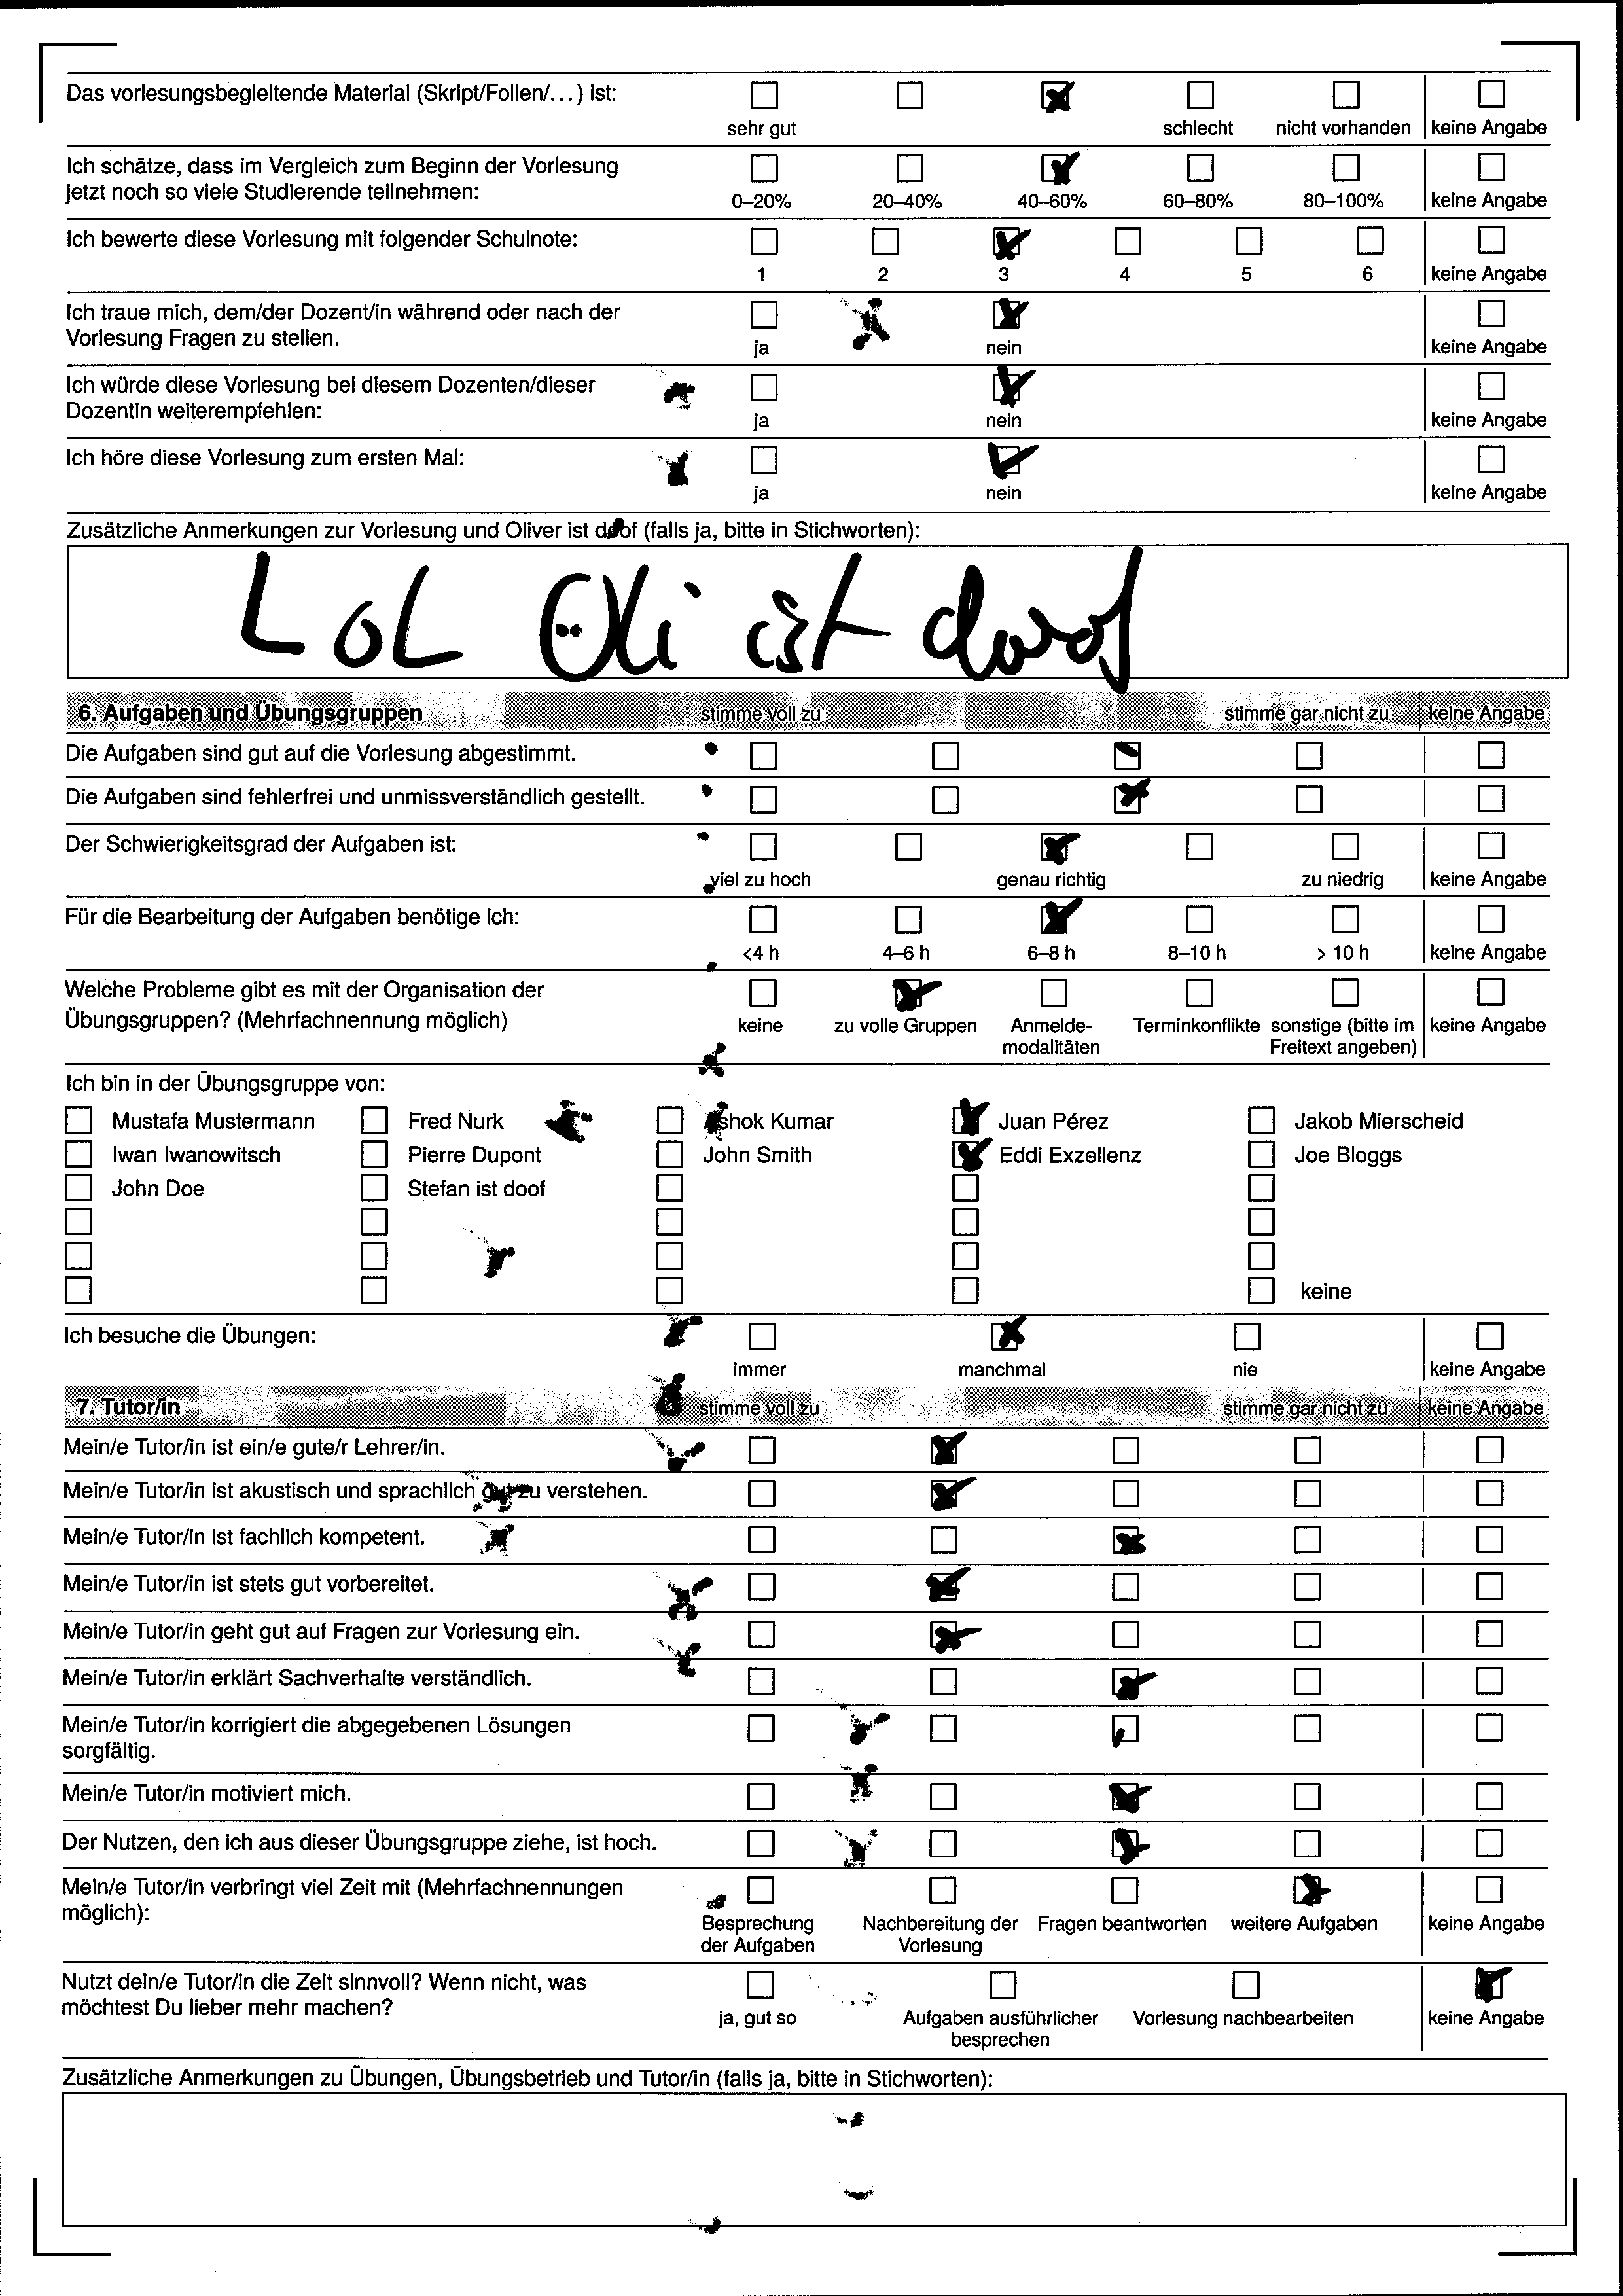 Das vorlesungsbegleitende Material (Skript/Folien/...) ist:
sehr gut schlecht nicht vorhanden keine Angabe
Ich schätze, dass im Vergleich zum Beginn der Vorlesung
jetzt noch so viele Studierende teilnehmen:
0–20% 20–40% 40–60% 60–80% 80–100% keine Angabe
Ich bewerte diese Vorlesung mit folgender Schulnote:
1 2 3 4 5 6 keine Angabe
Ich traue mich, dem/der Dozent/in während oder nach der
Vorlesung Fragen zu stellen.
ja nein keine Angabe
Ich würde diese Vorlesung bei diesem Dozenten/dieser
Dozentin weiterempfehlen:
ja nein keine Angabe
Ich höre diese Vorlesung zum ersten Mal:
ja nein keine Angabe
Zusätzliche Anmerkungen zur Vorlesung und Oliver ist doof (falls ja, bitte in Stichworten):
LoL Oli ist doof
6. Aufgaben und Übungsgruppen stimme voll zu stimme gar nicht zu keine Angabe
Die Aufgaben sind gut auf die Vorlesung abgestimmt.
Die Aufgaben sind fehlerfrei und unmissverständlich gestellt.
Der Schwierigkeitsgrad der Aufgaben ist:
viel zu hoch genau richtig zu niedrig keine Angabe
Für die Bearbeitung der Aufgaben benötige ich:
<4 h 4–6 h 6–8 h 8–10 h > 10 h keine Angabe
Welche Probleme gibt es mit der Organisation der
Übungsgruppen? (Mehrfachnennung möglich)
keine zu volle Gruppen Anmelde- Terminkonflikte sonstige (bitte im keine Angabe
modalitäten Freitext angeben)
Ich bin in der Übungsgruppe von:
Mustafa Mustermann Fred Nurk Ashok Kumar Juan Pérez Jakob Mierscheid
Iwan Iwanowitsch Pierre Dupont John Smith Eddi Exzellenz Joe Bloggs
John Doe Stefan ist doof
keine
Ich besuche die Übungen:
immer manchmal nie keine Angabe
7. Tutor/in stimme voll zu stimme gar nicht zu keine Angabe
Mein/e Tutor/in ist ein/e gute/r Lehrer/in.
Mein/e Tutor/in ist akustisch und sprachlich gut zu verstehen.
Mein/e Tutor/in ist fachlich kompetent.
Mein/e Tutor/in ist stets gut vorbereitet.
Mein/e Tutor/in geht gut auf Fragen zur Vorlesung ein.
Mein/e Tutor/in erklärt Sachverhalte verständlich.
Mein/e Tutor/in korrigiert die abgegebenen Lösungen
sorgfältig.
Mein/e Tutor/in motiviert mich.
Der Nutzen, den ich aus dieser Übungsgruppe ziehe, ist hoch.
Mein/e Tutor/in verbringt viel Zeit mit (Mehrfachnennungen
möglich):
Besprechung Nachbereitung der Fragen beantworten weitere Aufgaben keine Angabe
der Aufgaben Vorlesung
Nutzt dein/e Tutor/in die Zeit sinnvoll? Wenn nicht, was
möchtest Du lieber mehr machen?
ja, gut so Aufgaben ausführlicher Vorlesung nachbearbeiten keine Angabe
besprechen
Zusätzliche Anmerkungen zu Übungen, Übungsbetrieb und Tutor/in (falls ja, bitte in Stichworten):